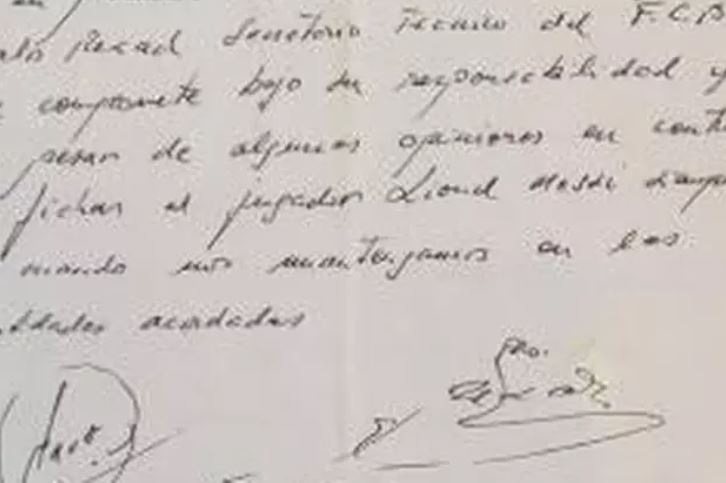 Rexach Secretario Técnico del F.C.B
compromete bajo su responsabilidad y
pesar de algunas opiniones en contra
fichar al jugador Lionel Messi siempre
cuando nos mantengamos en las
acordadas